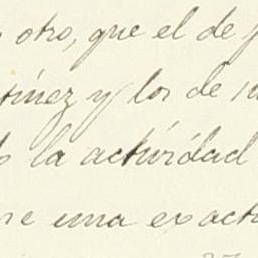 otro, que el de
tínez y los de
la actividad
una exact